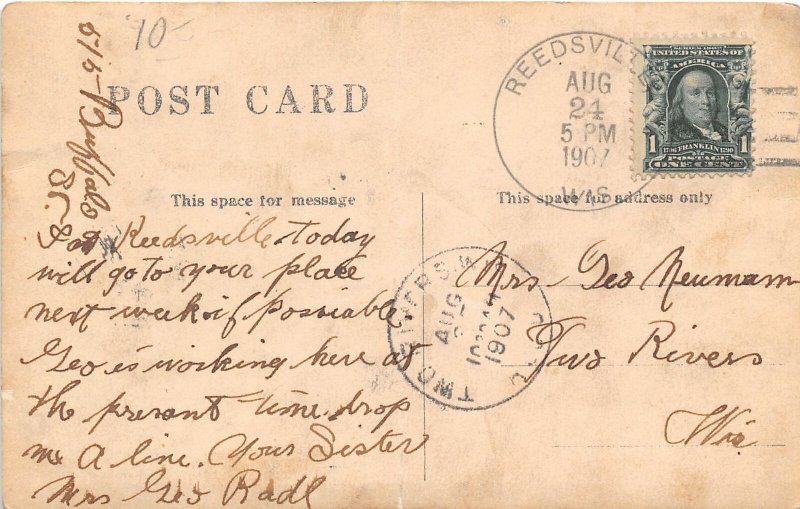 70
515 Buffalo
St.
POST CARD
REEDSVILLE
AUG
24
5 PM
1907
WIS.
SERIES 1902
UNITED STATES OF
AMERICA
1 1706 FRANKLIN 1790 1
POSTAGE
ONE CENT
This space for message
This space for address only
I at Reedsville today
will go to your place
next week if possiable
Geo is working here at
the presant time. drop
me A line. Your Sister
Mrs Geo Radl
TWO RIVERS
AUG
1907
Mrs Geo Neumann
Two Rivers
Wis